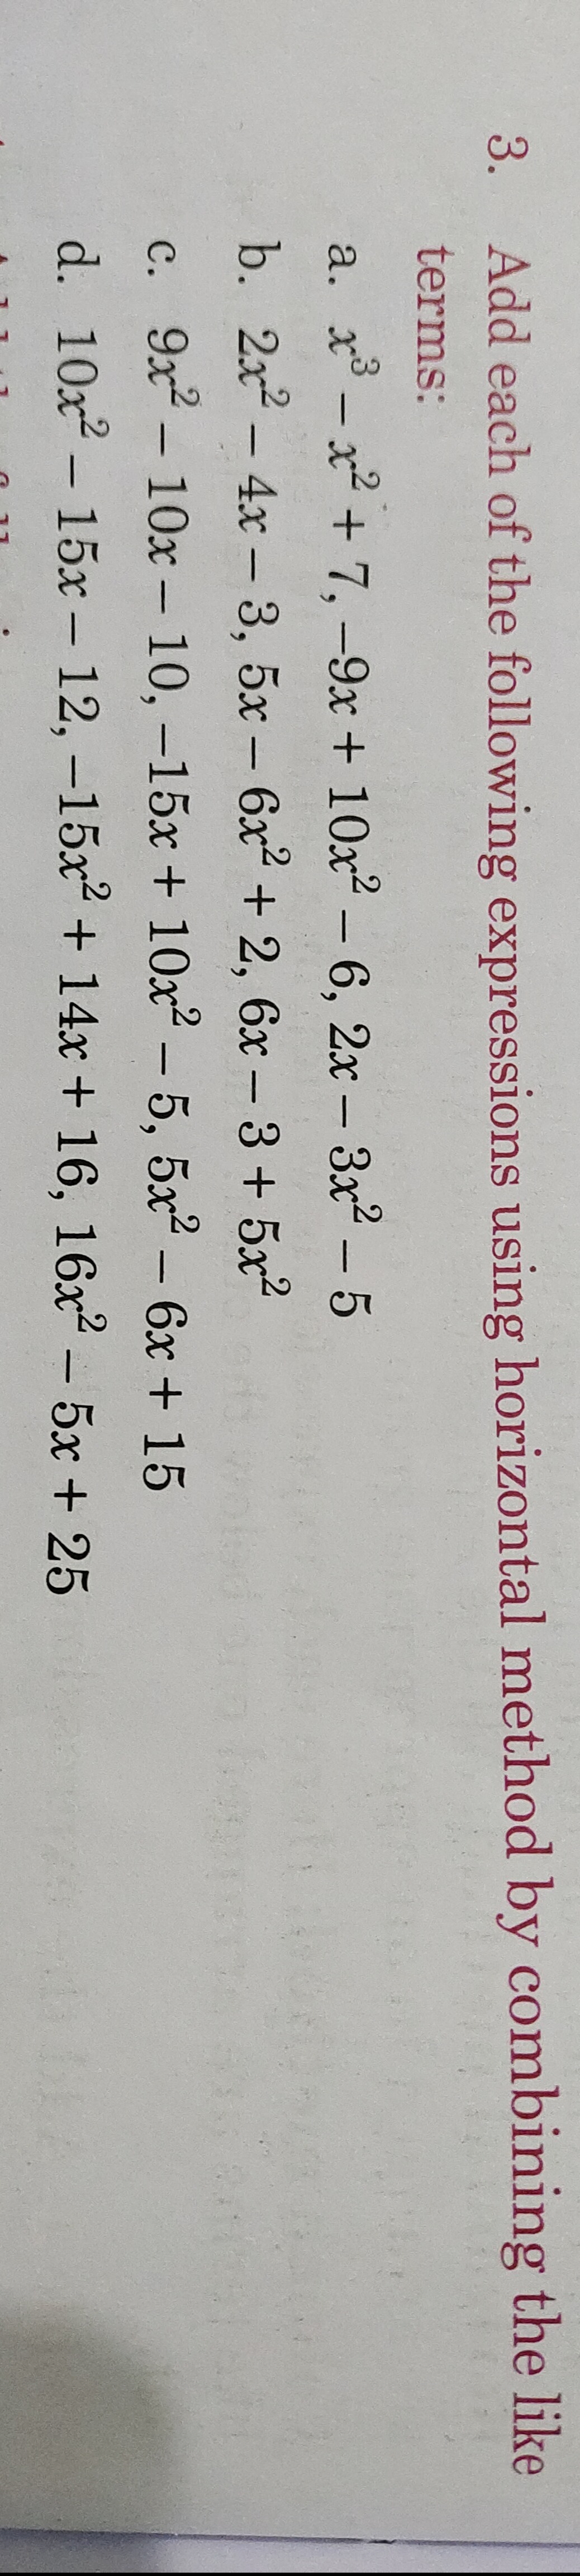 3. Add each of the following expressions using horizontal method by combining the like
terms:
a. x³ – x² + 7, –9x + 10x² – 6, 2x – 3x² – 5
b. 2x² – 4x – 3, 5x – 6x² + 2, 6x – 3 + 5x²
c. 9x² – 10x – 10, –15x + 10x² – 5, 5x² – 6x + 15
d. 10x² – 15x – 12, –15x² + 14x + 16, 16x² – 5x + 25